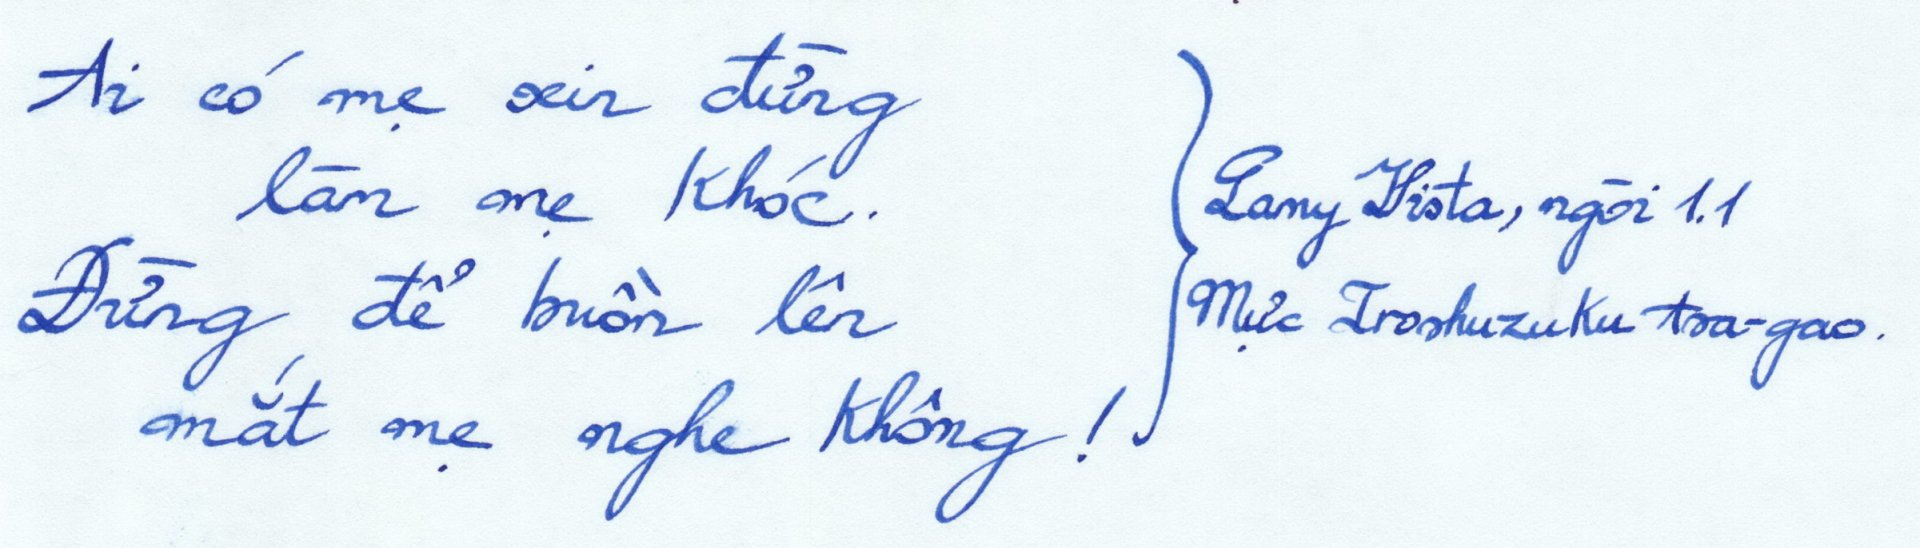 Ai có mẹ xin đừng
làm mẹ khóc.
Đừng để buồn lên
mắt mẹ nghe không!
Lamy Vista, ngòi 1.1
Mực Iroshuzuku tsa-gao.